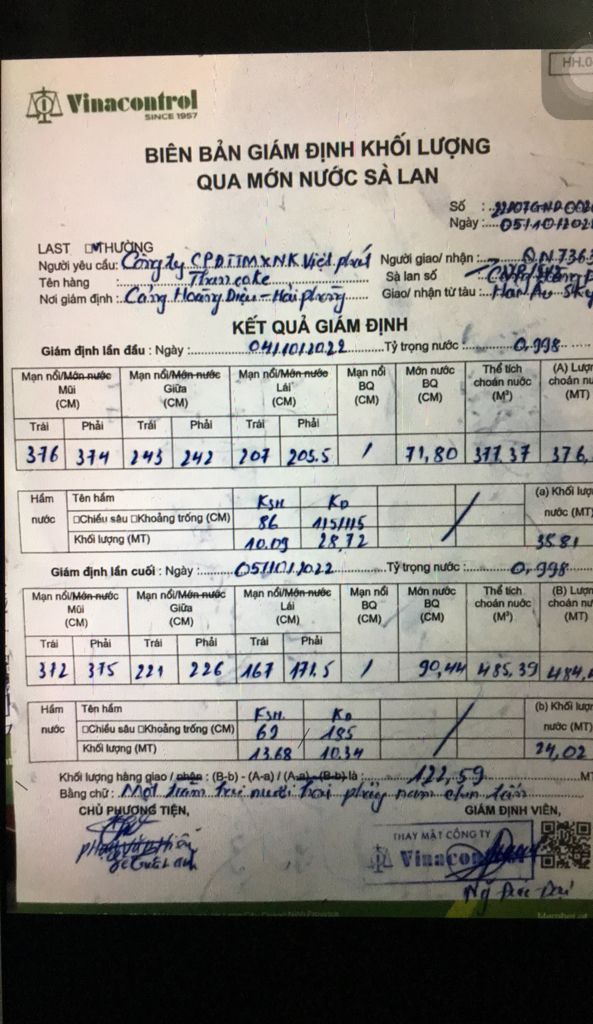 HH.0
Vinacontrol
SINCE 1957
BIÊN BẢN GIÁM ĐỊNH KHỐI LƯỢNG
QUA MỚN NƯỚC SÀ LAN
Số :
Ngày : 05/10/202
LAST □ THƯỜNG
Người yêu cầu: Công ty CPĐTTMXNK Việt phát Người giao/ nhận : Q.N 7363
Tên hàng : Than coke Sà lan số
Nơi giám định : Cảng Hoàng Diệu - Hải phòng Giao/ nhận từ tàu : Sky
KẾT QUẢ GIÁM ĐỊNH
Giám định lần đầu : Ngày : 04/10/2022 Tỷ trọng nước : 0,998
Mạn nổi/Món nước Mũi (CM) Mạn nổi/Món nước Giữa (CM) Mạn nổi/Món nước Lái (CM) Mạn nổi BQ (CM) Món nước BQ (CM) Thể tích choán nước (M³) (A) Lượn choán nu (MT)
Trái Phải Trái Phải Trái Phải
376 374 243 242 207 205.5 / 71,80 377.37 376,
Hầm nước Tên hầm KSH KD (a) Khối lượ nước (MT)
□Chiều sâu □Khoảng trống (CM) 86 115/115
Khối lượng (MT) 10.09 28,72 35.81
Giám định lần cuối : Ngày : 05/10/2022 Tỷ trọng nước : 0,998
Mạn nổi/Món nước Mũi (CM) Mạn nổi/Món nước Giữa (CM) Mạn nổi/Món nước Lái (CM) Mạn nổi BQ (CM) Món nước BQ (CM) Thể tích choán nước (M³) (B) Lượn choán nu (MT)
Trái Phải Trái Phải Trái Phải
372 375 221 226 167 171.5 / 90,44 485,39 484,
Hầm nước Tên hầm KSH. KD (b) Khối lượ nước (MT)
□Chiều sâu □Khoảng trống (CM) 69 185
Khối lượng (MT) 13.68 10.34 24,02
Khối lượng hàng giao / nhận : (B-b) - (A-a) / (A-a) - (B-b) là : 122,59 M
Bằng chữ : Một trăm hai mươi hai phẩy năm chín tấn
CHỦ PHƯƠNG TIỆN, GIÁM ĐỊNH VIÊN,
THAY MẶT CÔNG TY
Vinacontrol